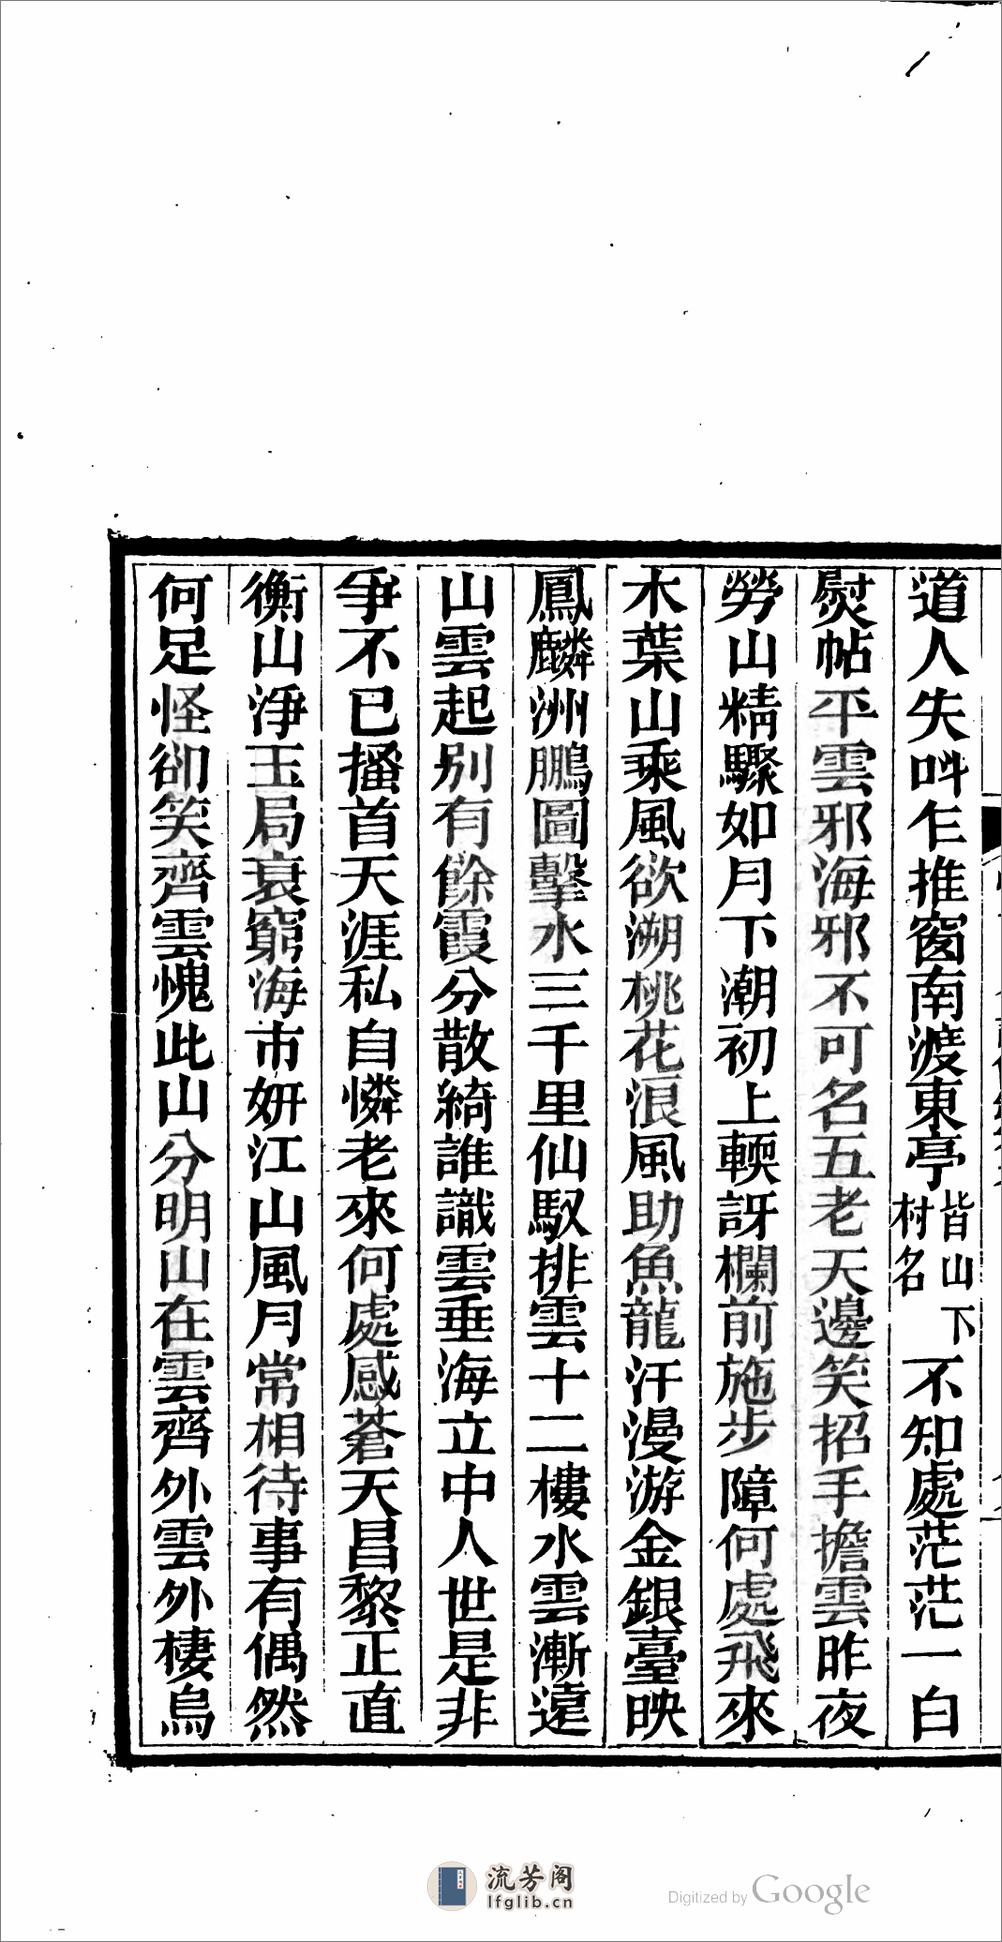 道人失呌乍推窗南渡東亭皆山下村名不知處茫茫一白
熨帖平雲邪海邪不可名五老天邊笑招手擔雲昨夜
勞山精驟如月下潮初上輭訝欄前施步障何處飛來
木葉山乘風欲溯桃花浪風助魚龍汗漫游金銀臺映
鳳麟洲鵬圖擊水三千里仙馭排雲十二樓水雲漸遠
山雲起別有餘霞分散綺誰識雲垂海立中人世是非
爭不已搔首天涯私自憐老來何處感蒼天昌黎正直
衡山淨玉局衰窮海市妍江山風月常相待事有偶然
何足怪卻笑齊雲愧此山分明山在雲齊外雲外棲鳥
流芳阁
lfglib.cn
Digitized by Google